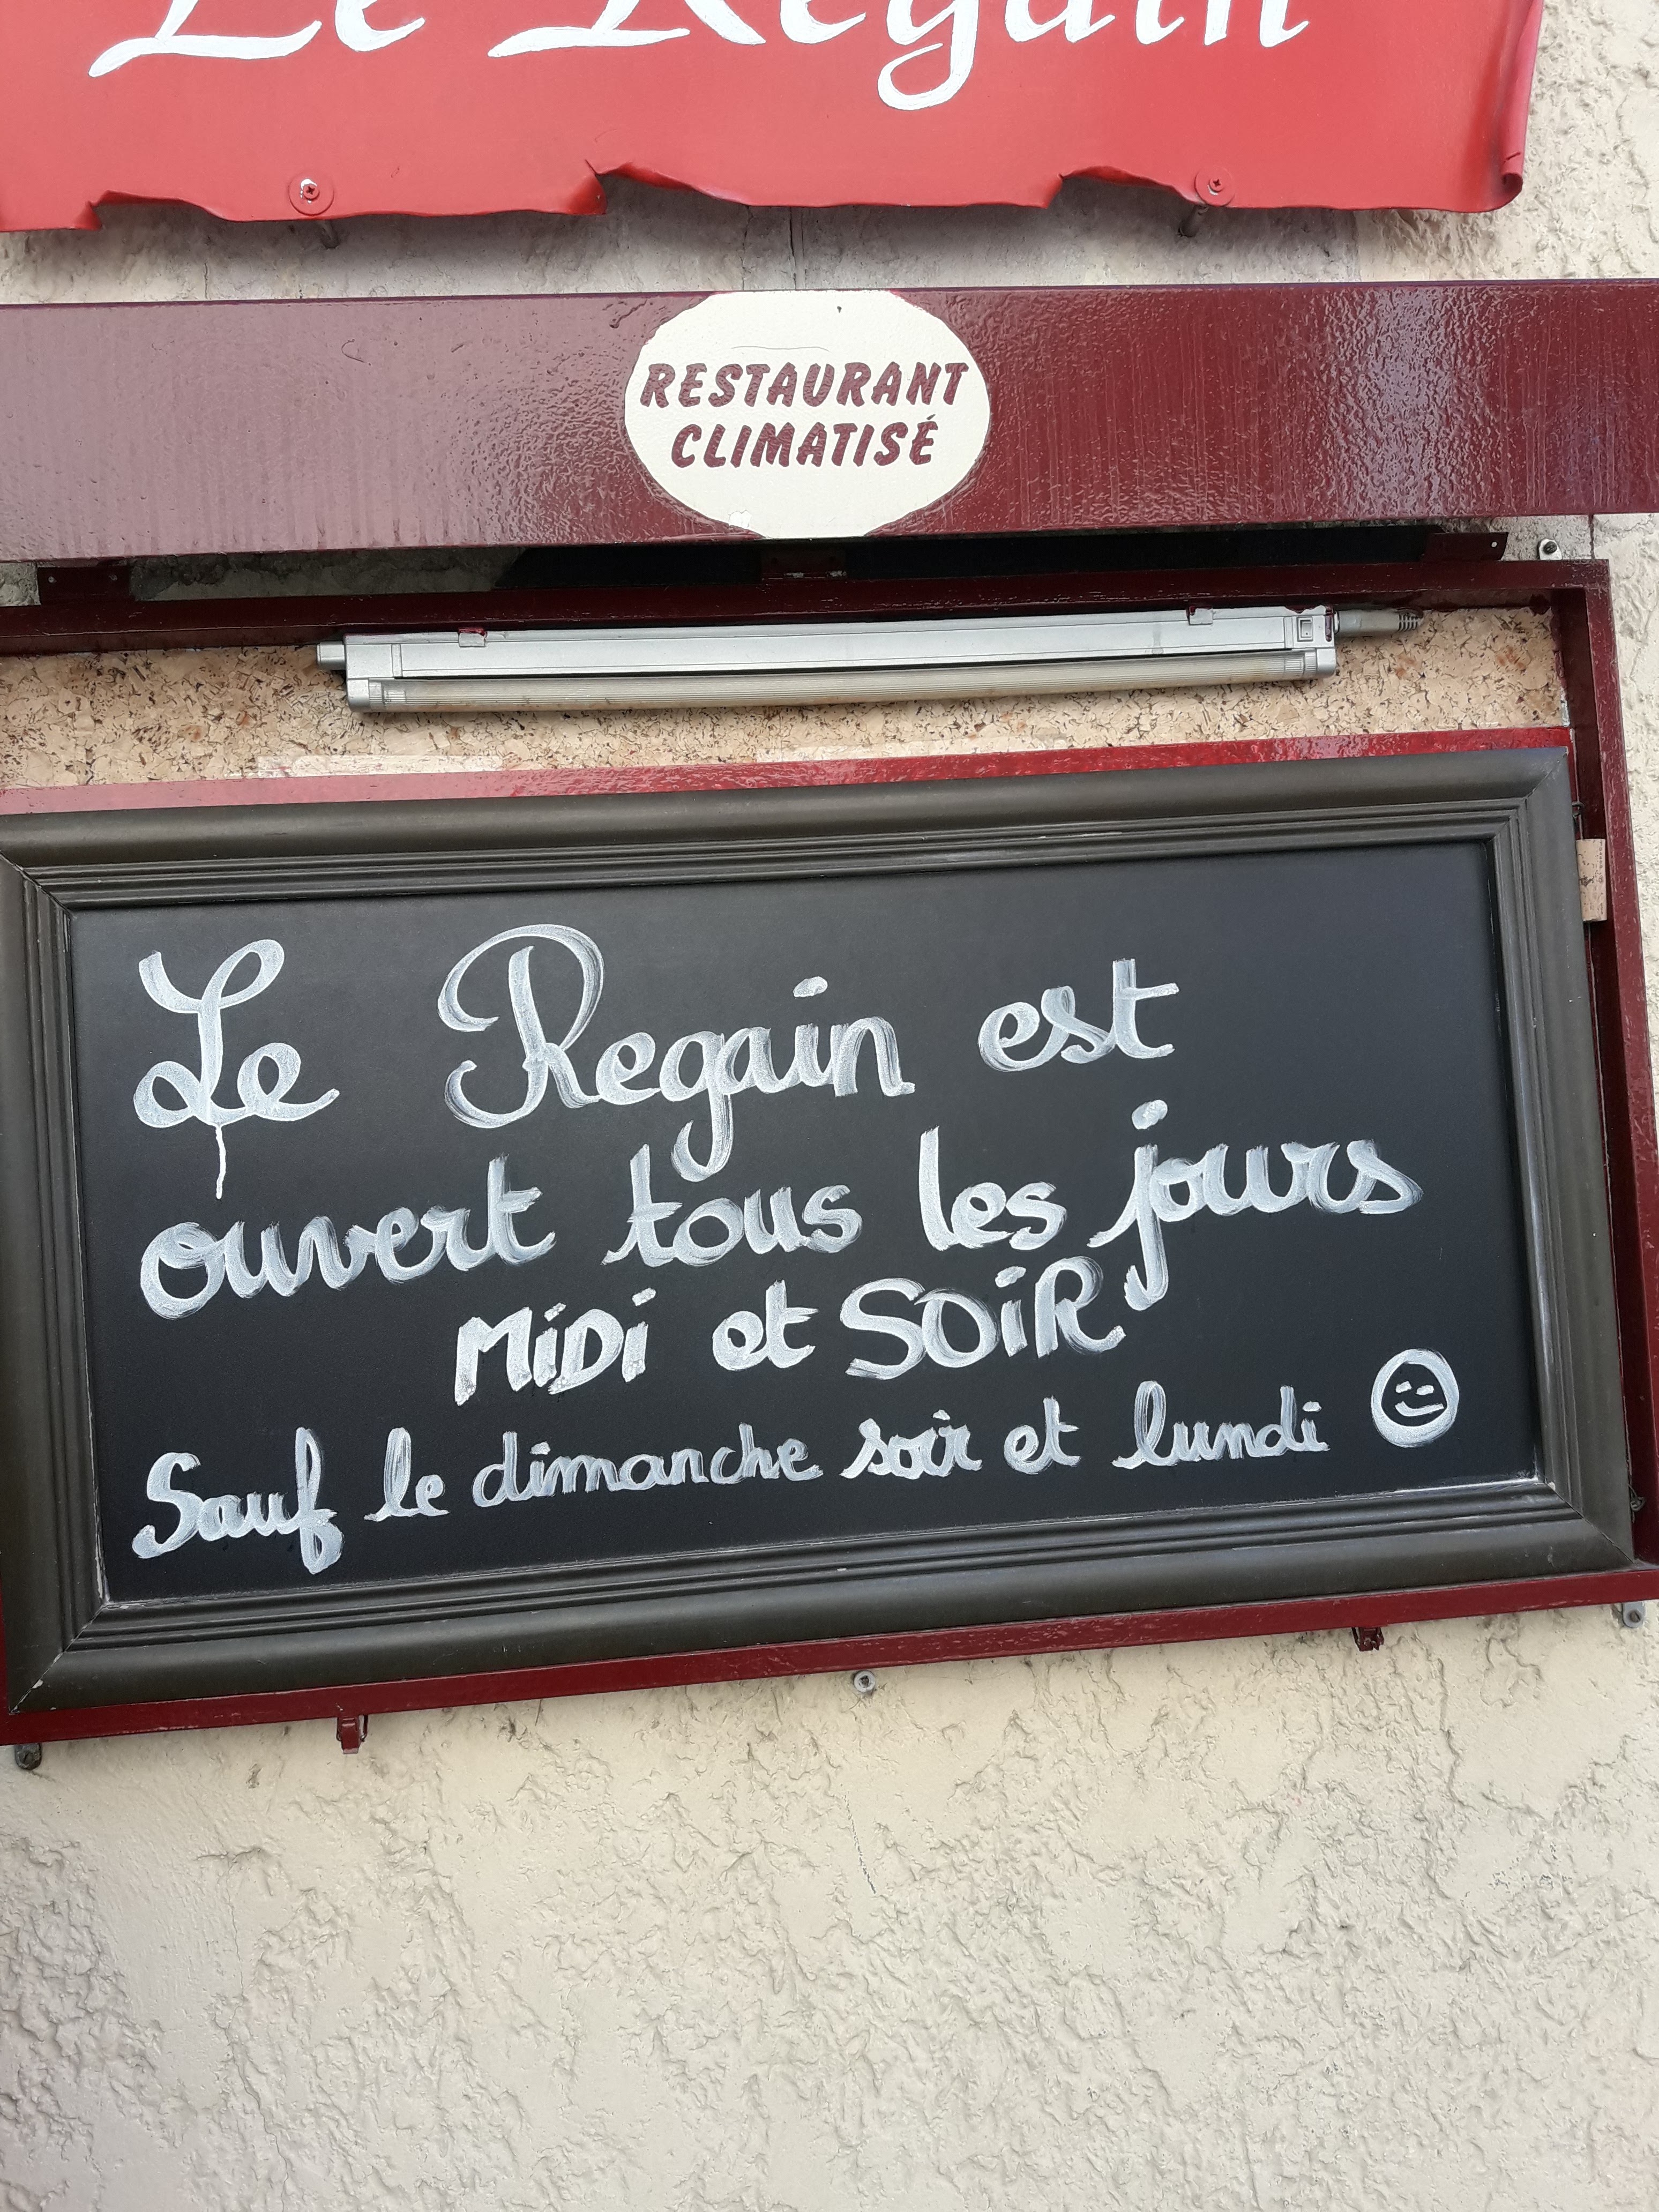 Le Regain
RESTAURANT
CLIMATISÉ
Le Regain est
ouvert tous les jours
MiDi et SOiR
Sauf le dimanche soir et lundi